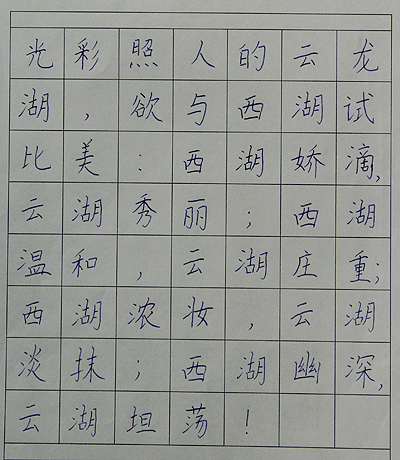 光彩照人的云龙
湖，欲与西湖试
比美：西湖娇滴，
云湖秀丽；西湖
温和，云湖庄重；
西湖浓妆，云湖
淡抹；西湖幽深，
云湖坦荡！